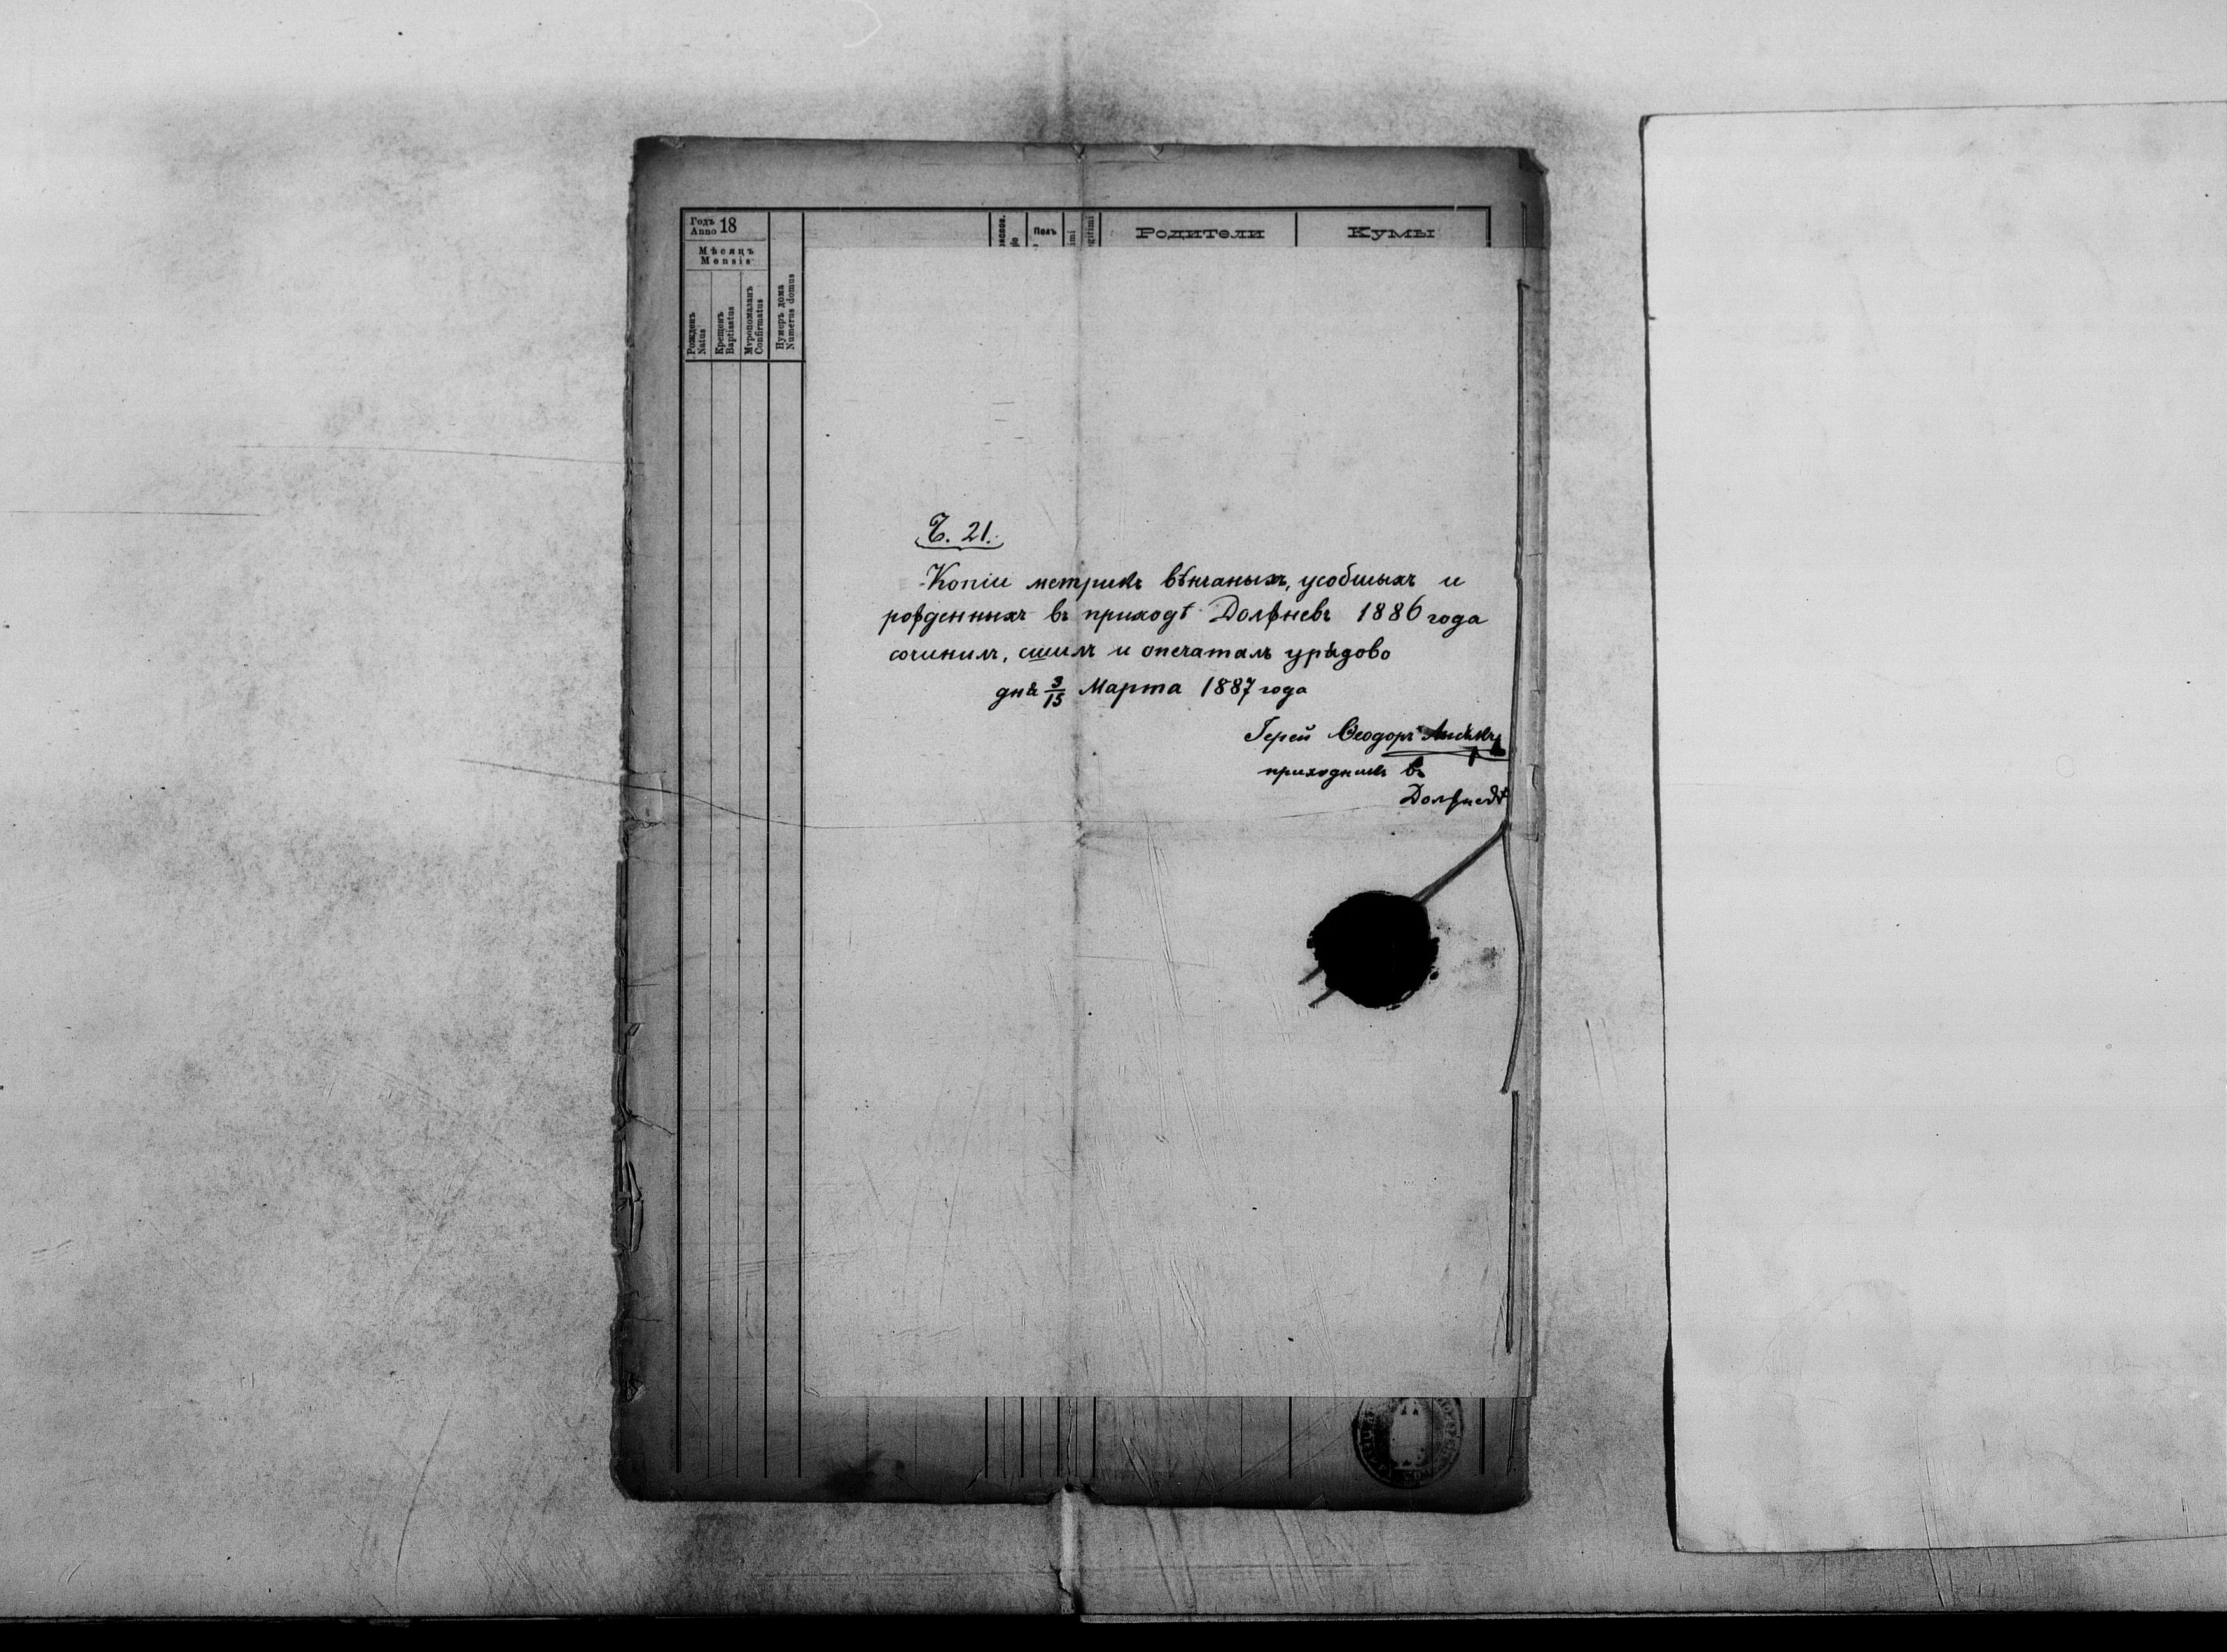 Годъ
Anno 18
Мѣсяцъ
Mensis
Рожденъ
Natus
Крещенъ
Baptisatus
Мѵропомазанъ
Confirmatus
Нумеръ дома
Numerus domus
Полъ
Родители
Кумы
Ч. 21.
Копіи метрикъ вѣнчаныхъ, усобшыхъ и
рожденныхъ въ приходѣ Должневъ 1886 года
сочинилъ, сшилъ и опечаталъ урѧдово
днѧ 3/15 Марта 1887 года
Іерей Ѳеодоръ
приходникъ въ
Должневѣ